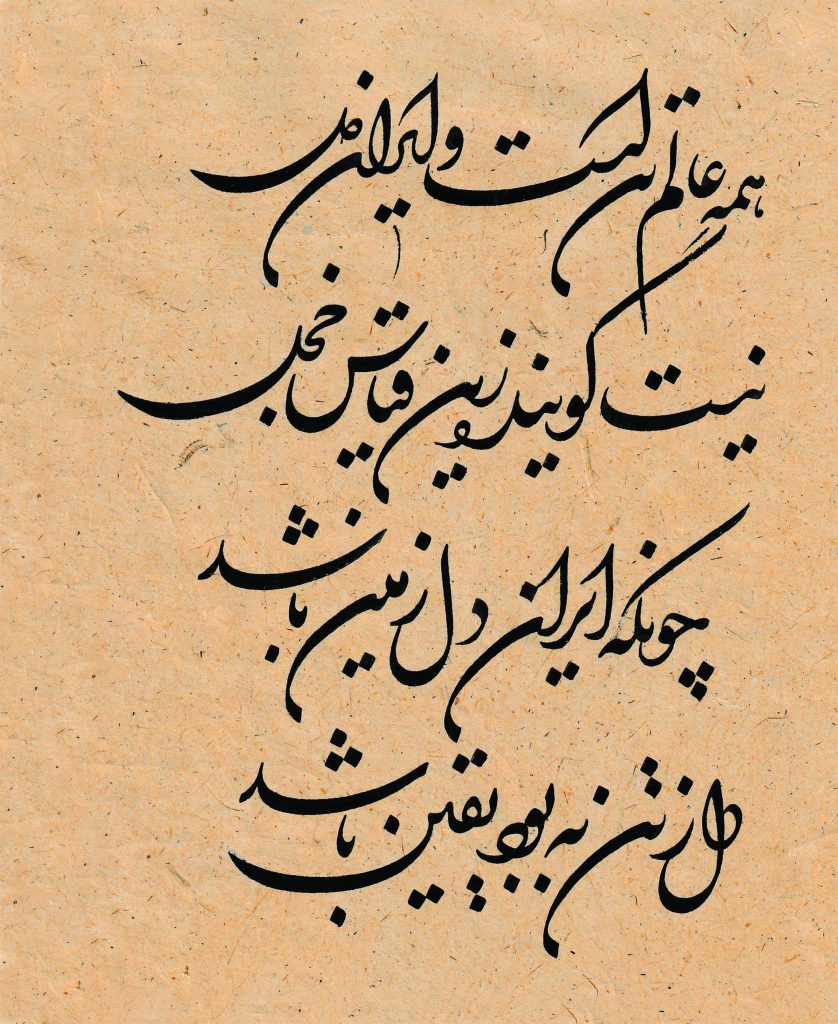 همه عالم تن است و ایران دل
نیست گوینده زین قیاس خجل
چونکه ایران دل زمین باشد
دل ز تن به بود یقین باشد